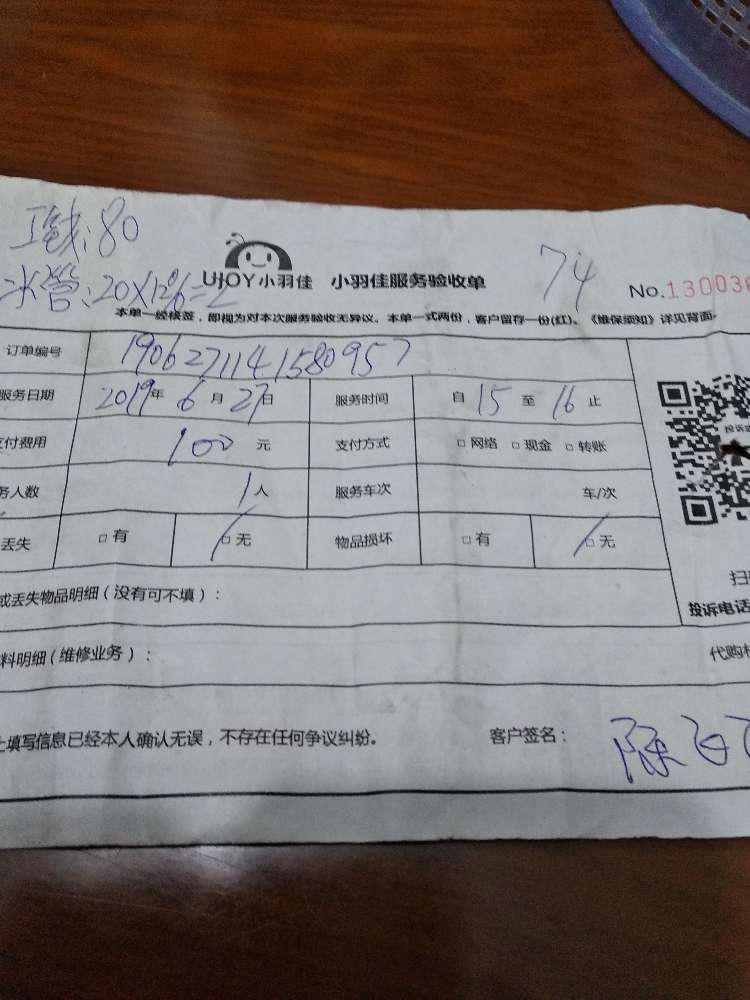 工钱:80
水管:20×12%=2
UJOY小羽佳 小羽佳服务验收单 74 No.130038
本单一经核签,即视为对本次服务验收无异议。本单一式两份,客户留存一份(红)、《维保须知》详见背面
订单编号 190627114158095 7
服务日期 2019年 6月 27日 服务时间 自 15 至 16 止
支付费用 100 元 支付方式 □ 网络 □ 现金 □ 转账
务人数 1人 服务车次 车/次
丢失 □ 有 □ 无 物品损坏 □ 有 □ 无
或丢失物品明细(没有可不填):
扫
投诉电话
料明细(维修业务): 代购
上填写信息已经本人确认无误,不存在任何争议纠纷。 客户签名: 陈